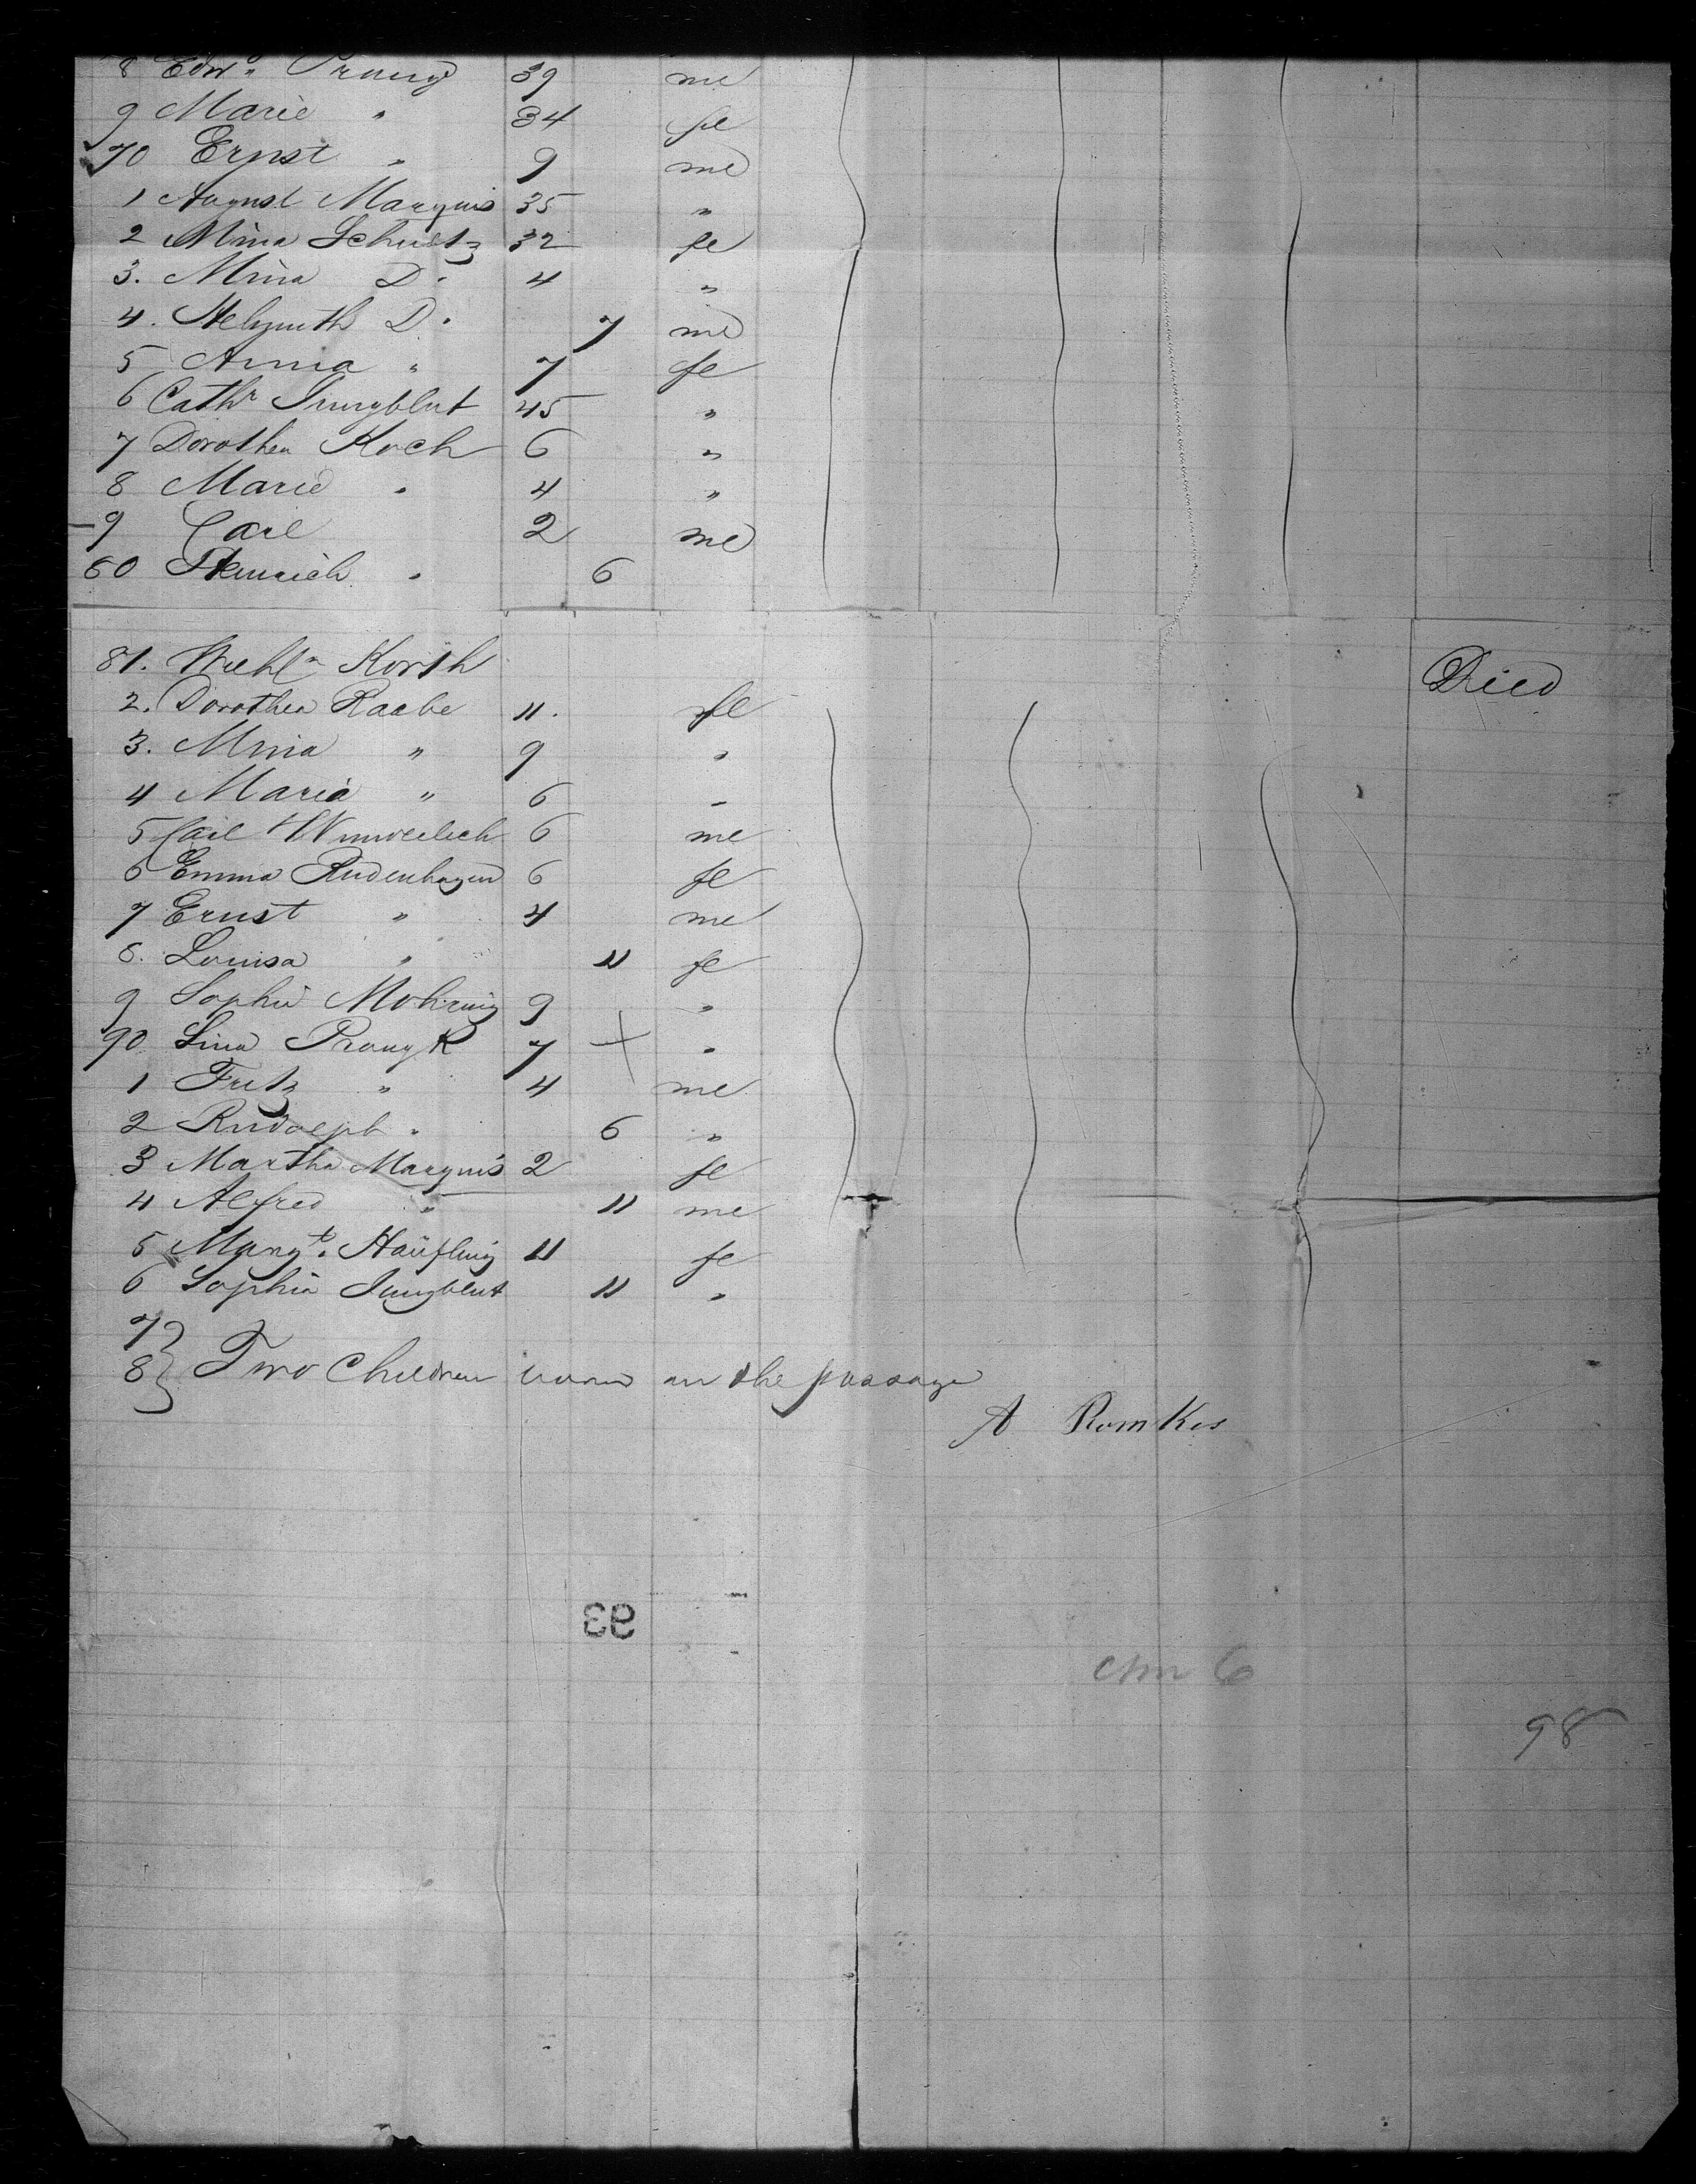 8 Edw. Prang 39 me
9 Marie " 34 fe
70 Ernst " 9 me
1 August Marquis 35 "
2 Mina Schultz 32 fe
3. Mina Do 4 "
4. Helmuth Do 7 me
5 Anna " 7 fe
6 Cathr Jungblut 45 "
7 Dorothea Koch 6 "
8 Marie " 4 "
9 Carl 2 me
80 Heinrich " 6
81. Korth Died
2. Dorothea Raabe 11. fe
3. Mina " 9 "
4 Maria " 6 "
5 Carl Wunderlich 6 me
6 Emma Rudenhagen 6 fe
7 Ernst " 4 me
8. Louisa " 11 fe
9 Sophie Mohring 9 "
90 Lina Prang 7 "
1 Fritz " 4 me
2 Rudolph " 6 "
3 Martha Marquis 2 fe
4 Alfred " 11 me
5 Margt. Häufling 11 fe
6 Sophia Jungblut 11 "
7
8 } Two Children born on the passage
A Romkes
93
6
98